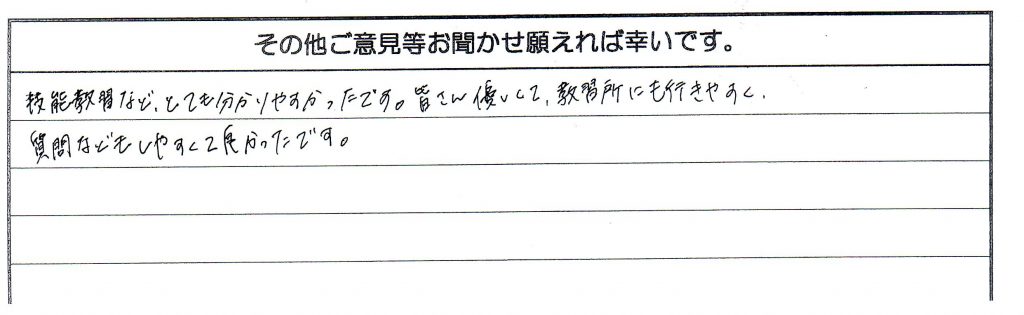 その他ご意見等お聞かせ願えれば幸いです。
技能教習など、とても分かりやすかったです。皆さん優しくて、教習所にも行きやすく、
質問などもしやすくて良かったです。